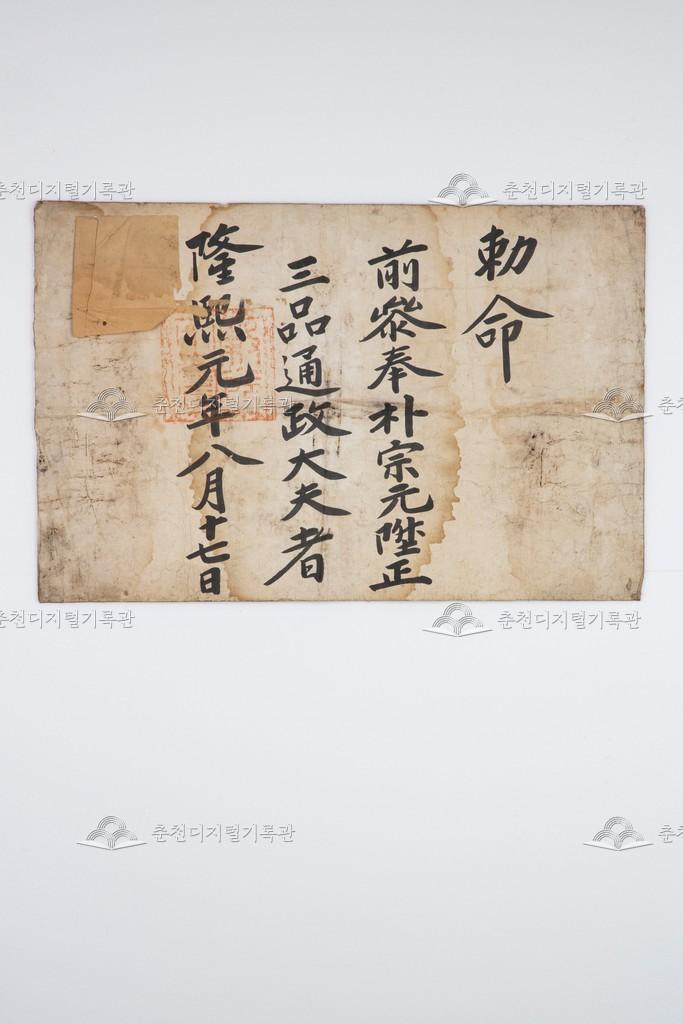 勅命
前叅奉朴宗元陞正
三品通政大夫者
隆熙元年八月十七日
춘천디지털기록관
춘천디지털기록관
춘천디지털기록관
춘천
춘천디지털기록관
춘천디지털기록관
춘천디지털기록관
춘천